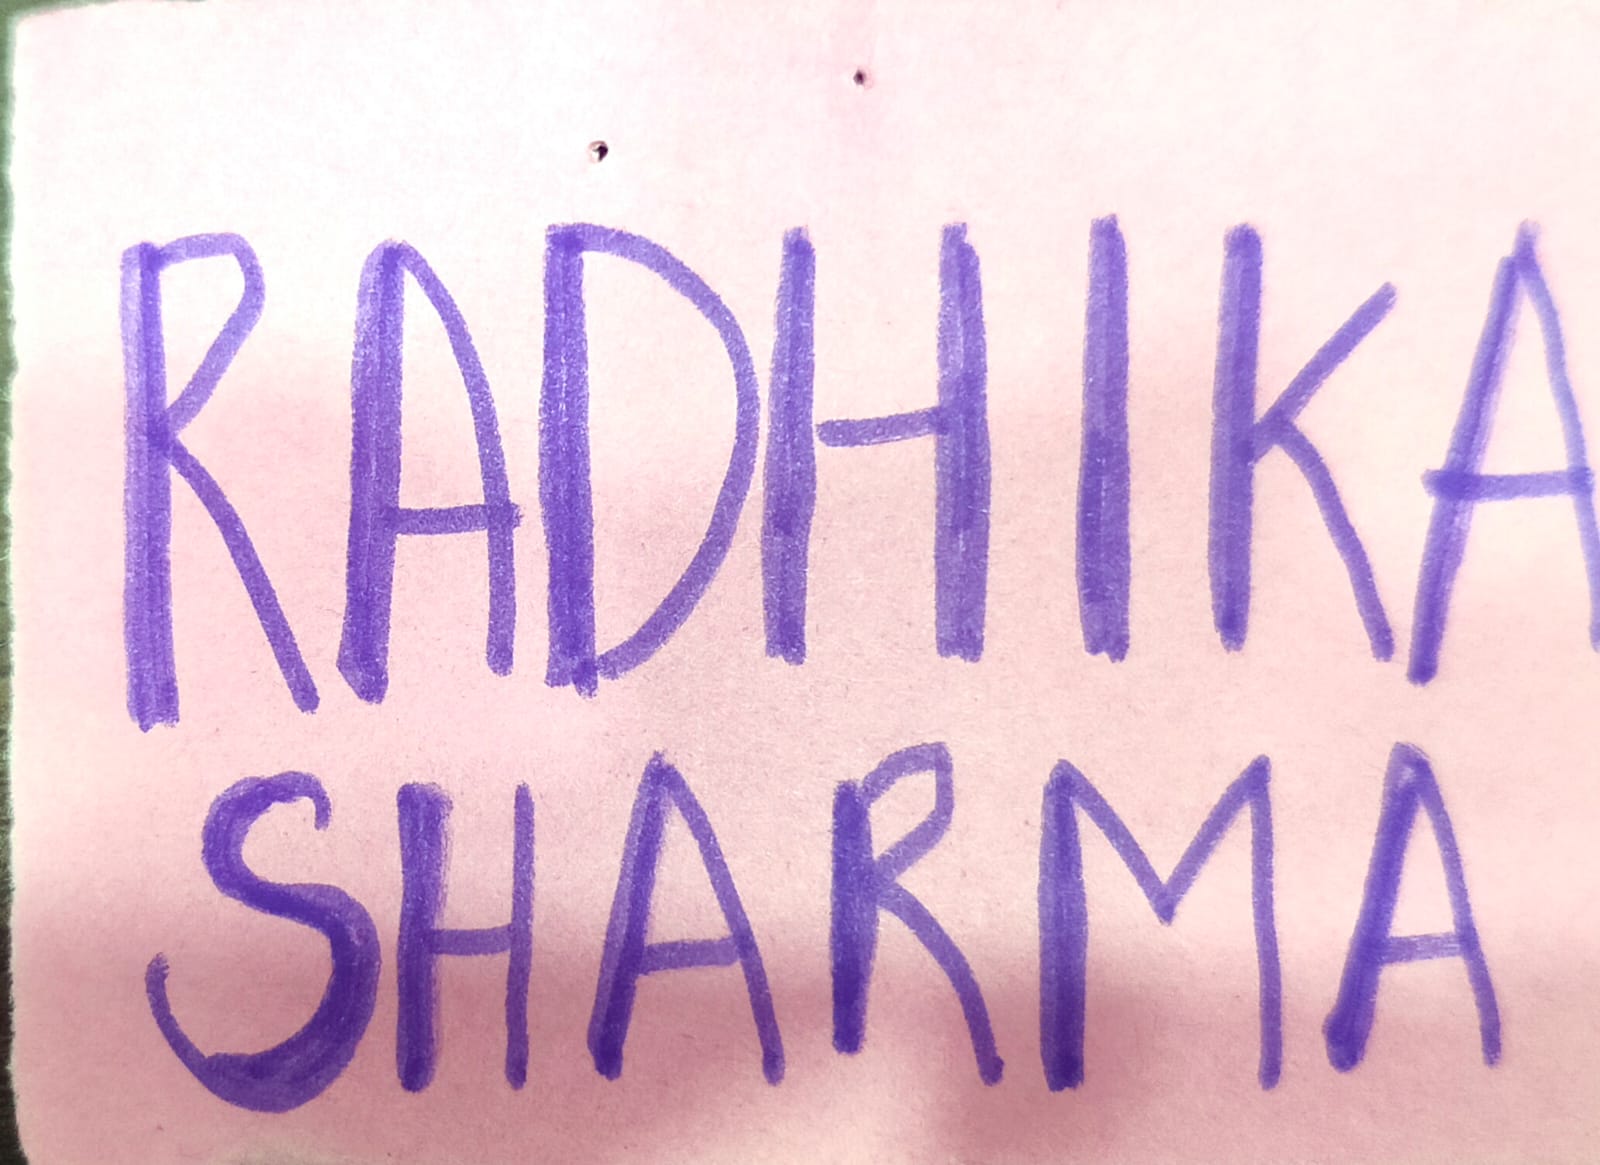 RADHIKA
SHARMA